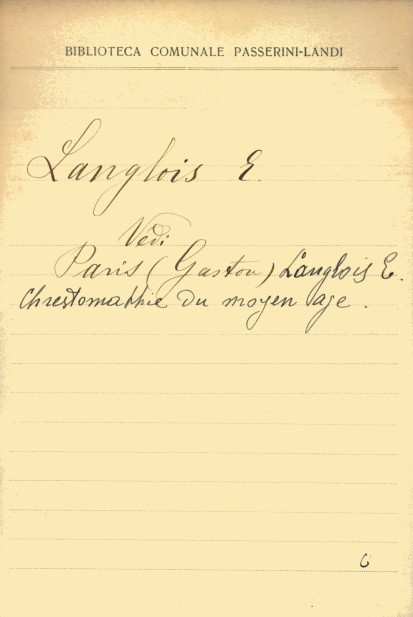 BIBLIOTECA COMUNALE PASSERINI-LANDI
Langlois E.
Vedi
Paris (Gaston) Langlois E.
Chrestomathie du moyen age.